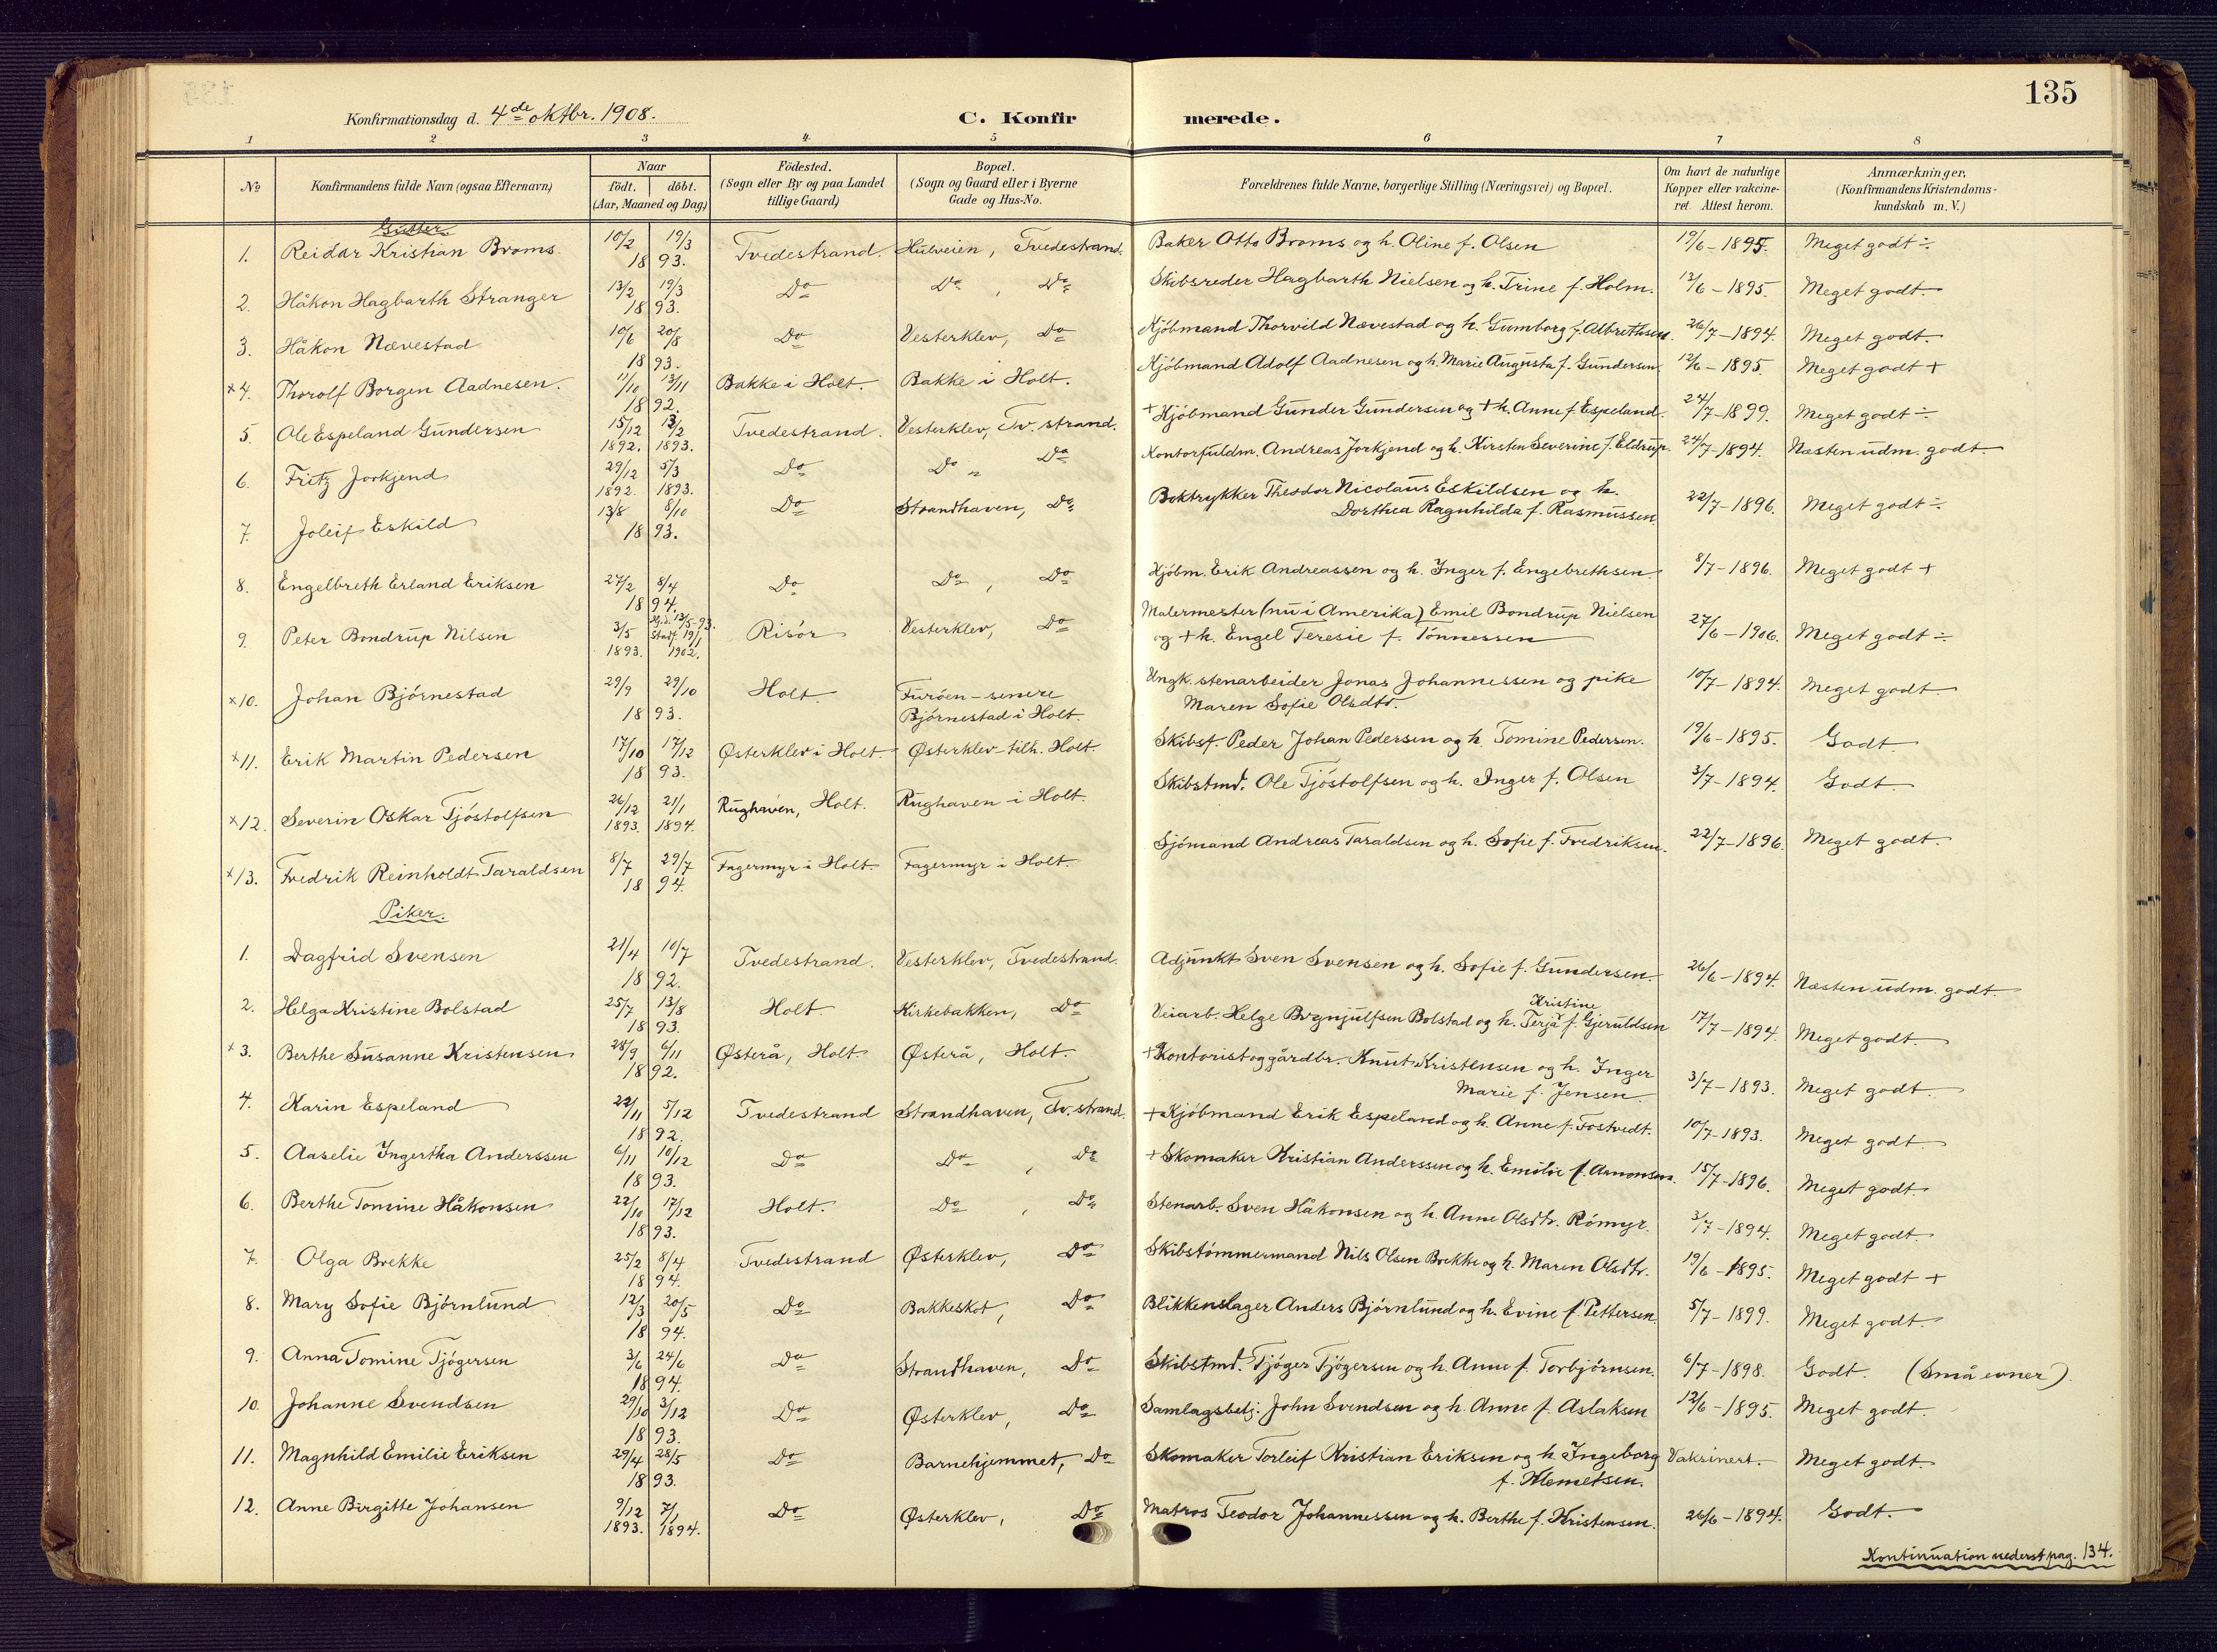 135
Konfirmationsdag d. 4de oktbr. 1908.
C. Konfirmerede.
1 2 3 4. 5 6 7 8
No
Konfirmandens fulde Navn (ogsaa Efternavn)
Naar
födt. döbt.
(Aar, Maaned og Dag)
Födested.
(Sogn eller By og paa Landet
tillige Gaard)
Bopæl.
(Sogn og Gaard eller i Byerne
Gade og Hus-No.
Forældrenes fulde Navne, borgerlige Stilling (Næringsvei) og Bopæl.
Om havt de naturlige
Kopper eller vakcine-
ret. Attest herom.
Anmærkninger,
(Konfirmandens Kristendoms-
kundskab m. V.)
Gutter
1. Reidar Kristian Broms. 10/2 19/3 1893. Tvedestrand. Hulveien, Tvedestrand. Baker Otto Broms og h. Oline f. Olsen 19/6-1895. Meget godt ÷
2. Håkon Hagbarth Stranger 13/2 19/3 1893. Do Do, Do Skibsreder Hagbarth Nielsen og h. Trine f. Holm. 13/6-1895. Meget godt.
3. Håkon Nævestad 10/6 20/8 1893. Do Vesterklev, Do Kjöbmand Thorvild Nævestad og h. Gumborg f. Albrethsen. 26/7-1894. Meget godt.
x4. Thorolf Borgen Aadnesen. 11/10 13/11 1892. Bakke i Holt. Bakke i Holt. Kjöbmand Adolf Aadnesen og h. Marie Augusta f. Gundersen. 12/6-1895. Meget godt +
5. Ole Espeland Gundersen 15/12 1892. 13/2 1893. Tvedestrand. Vesterklev, Tv.strand. +Kjöbmand Gunder Gundersen og +h. Anne f. Espeland. 24/7-1899. Meget godt ÷
6. Fritz Jorkjend 29/12 1892. 5/3 1893. Do Do, Do Kontorfuldm. Andreas Jorkjend og h. Kirsten Severine f. Eldrup. 24/7-1894. Næsten udm. godt.
7. Joleif Eskild 13/8 8/10 1893. Do Strandhaven, Do Boktrykker Theodor Nicolaus Eskildsen og h.
Dorthea Ragnhilda f. Rasmussen. 22/7-1896. Meget godt ÷
8. Engelbreth Erland Eriksen 27/2 8/4 1894. Do Do, Do Kjöbm. Erik Andreassen og h. Inger f. Engebrethsen. 8/7-1896. Meget godt +
9. Peter Bondrup Nilsen 3/5 1893. Hjd. 13/5-93. Stadf. 19/1 1902. Risör Vesterklev, Do Malermester (nu i Amerika) Emil Bondrup Nielsen
og +h. Engel Teresie f. Tönnessen 27/6-1906. Meget godt ÷
x10. Johan Bjórnestad 29/9 29/10 1893. Holt. Furöen - senere
Bjórnestad i Holt. Ungk. stenarbeider Jonas Johannessen og pike
Maren Sofie Olsdtr. 10/7-1894. Meget godt
x11. Erik Martin Pedersen 17/10 17/12 1893. Østerklev i Holt Østerklev tilh. Holt. Skibsf. Peder Johan Pedersen og h. Tomine Pedersen. 19/6-1895. Godt
x12. Severin Oskar Tjóstolfsen 26/12 1893. 21/1 1894. Rughaven, Holt. Rughaven i Holt. Skibstmd. Ole Tjóstolfsen og h. Inger f. Olsen 3/7-1894. Godt
x13. Fredrik Reinholdt Taraldsen 8/7 29/7 1894. Fagermyr i Holt. Fagermyr i Holt. Sjómand Andreas Taraldsen og h. Sofie f. Fredriksen. 22/7-1896. Meget godt.
Piker.
1. Dagfrid Svensen 21/4 10/7 1892. Tvedestrand. Vesterklev, Tvedestrand. Adjunkt Sven Svensen og h. Sofie f. Gundersen. 26/6-1894. Næsten udm. godt.
2. Helga Kristine Bolstad 25/7 13/8 1893. Holt. Kirkebakken, Do Veiarb. Helge Brynjulfsen Bolstad og h. Terja Kristine f. Gjeruldsen 17/7-1894. Meget godt.
x3. Berthe Susanne Kristensen 28/9 6/11 1892. Østerå, Holt. Østerå, Holt. +Kontorist og gårdbr. Knut Kristensen og h. Inger
Marie f. Jensen 3/7-1893. Meget godt
4. Karin Espeland 22/11 5/12 1892. Tvedestrand Strandhaven, Tv.strand. +Kjöbmand Erik Espeland og h. Anne f. Fostvedt. 10/7-1893. Meget godt
5. Aaselie Ingertha Anderssen 6/11 10/12 1893. Do Do, Do +Skomaker Kristian Anderssen og h. Emilie f. Arnonsen. 15/7-1896. Meget godt.
6. Berthe Tomine Håkonsen 22/10 17/12 1893. Holt. Do, Do Stenarb. Sven Håkonsen og h. Anne Olsdtr. Rómyr. 3/7-1894. Meget godt.
7. Olga Brekke 25/2 8/4 1894. Tvedestrand Østerklev, Do Skibstómmermand Nils Olsen Brekke og h. Maren Olsdtr. 19/6-1895. Meget godt +
8. Mary Sofie Bjórnlund 12/3 20/5 1894. Do Bakkeskot, Do Blikkenslager Anders Bjórnlund og h. Evine f. Pettersen. 5/7-1899. Meget godt.
9. Anna Tomine Tjógersen 3/6 24/6 1894. Do Strandhaven, Do Skibstmd. Tjóger Tjógersen og h. Anne f. Torbjórnsen. 6/7-1898. Godt. (Små evner).
10. Johanne Svendsen 29/10 3/12 1893. Do Østerklev, Do Samlagsbetj. John Svendsen og h. Anne f. Aslaksen 12/6-1895. Meget godt.
11. Magnhild Emilie Eriksen 29/4 28/5 1893. Do Barnehjemmet, Do Skomaker Torleif Kristian Eriksen og h. Ingeborg
f. Klemetsen. Vaksinert. Meget godt.
12. Anne Birgitte Johansen 9/12 1893. 7/1 1894. Do Østerklev, Do Matros Teodor Johannessen og h. Berthe f. Kristensen. 26/6-1894. Godt.
Kontinuation nederst pag. 134.